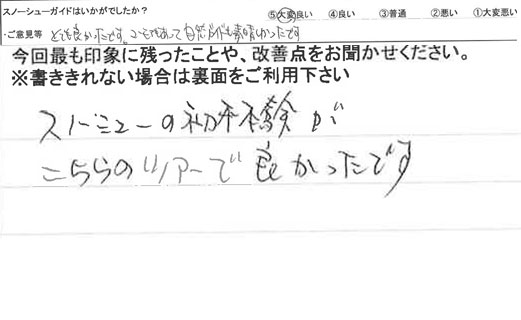 スノーシューガイドはいかがでしたか？ ⑤大変良い ④良い ③普通 ②悪い ①大変悪い
・ご意見等 とても良かったです。自然ガイドも素晴しかったです
今回最も印象に残ったことや、改善点をお聞かせください。
※書ききれない場合は裏面をご利用下さい
スノーシューの初体験が
こちらのツアーで良かったです